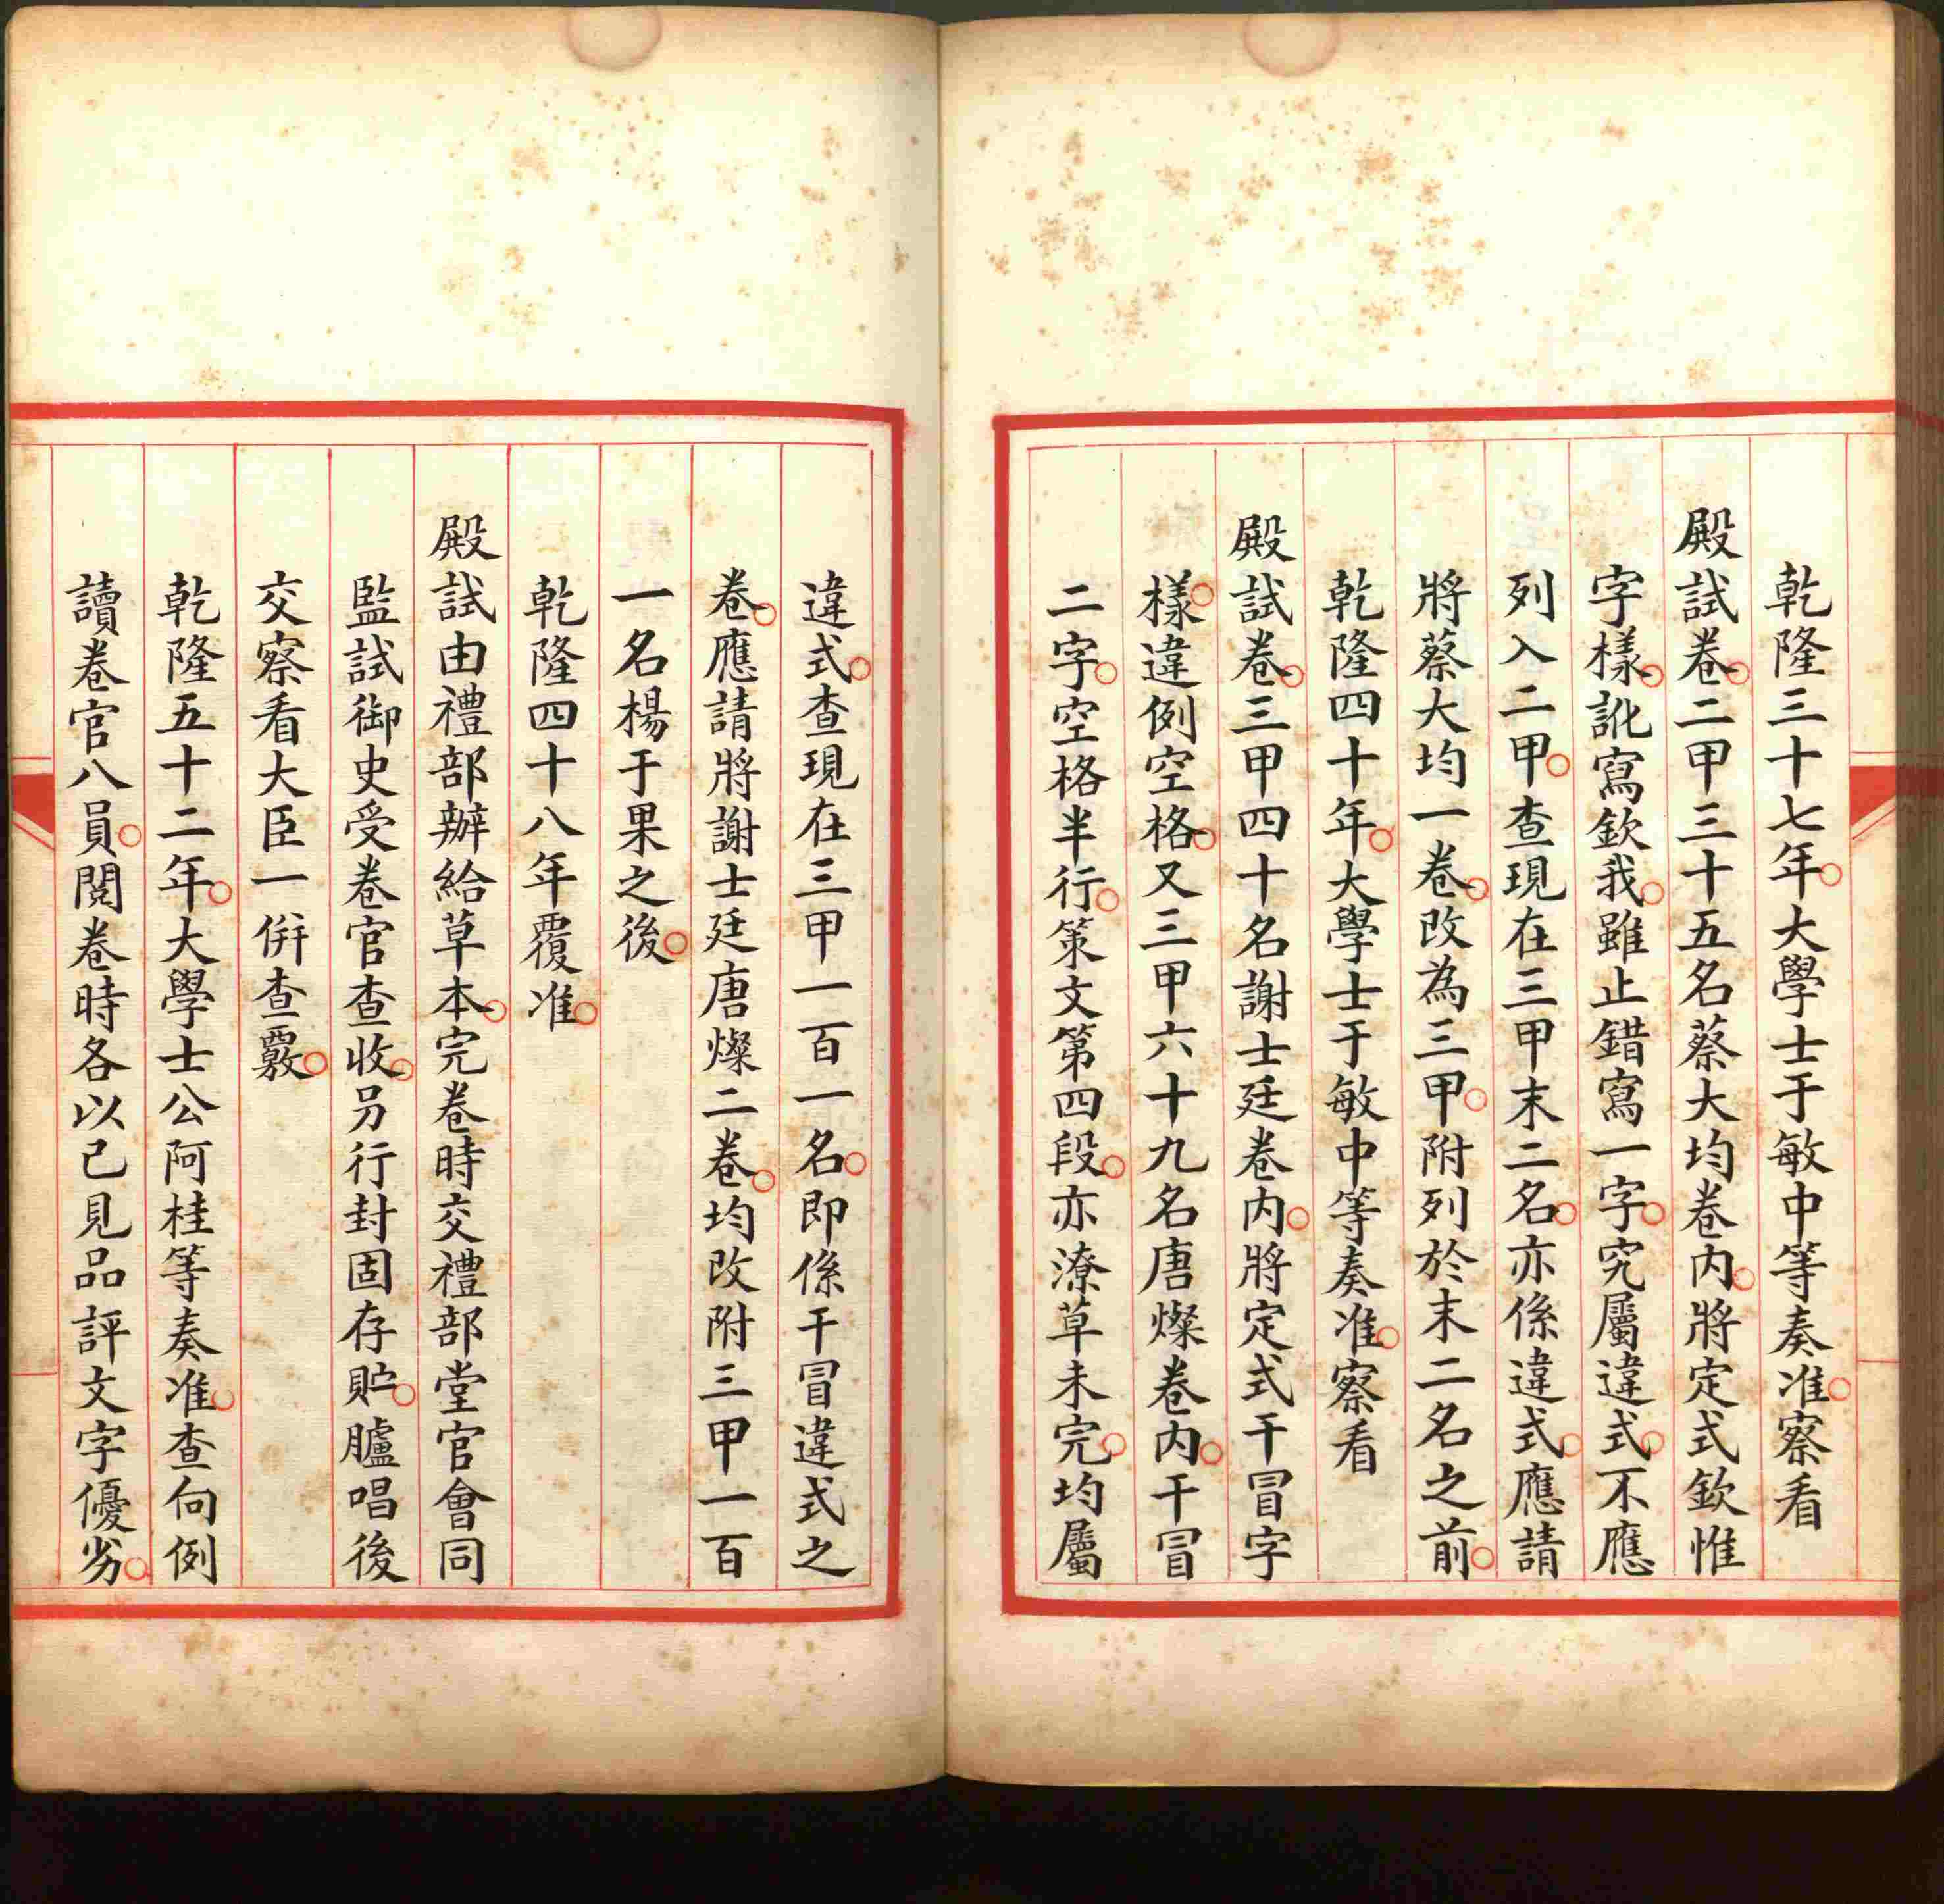 乾隆三十七年大學士于敏中等奏准察看
殿試卷二甲三十五名蔡大均卷内將定式欽惟
字樣訛寫欽我雖止錯寫一字究屬違式不應
列入二甲查現在三甲末二名亦係違式應請
將蔡大均一卷改為三甲附列於末二名之前
乾隆四十年大學士于敏中等奏准察看
殿試卷三甲四十名謝士廷卷内將定式干冒字
樣違例空格又三甲六十九名唐燦卷内干冒
二字空格半行策文第四段亦潦草未完均屬
違式查現在三甲一百一名即係干冒違式之
卷應請將謝士廷唐燦二卷均改附三甲一百
一名楊于果之後
乾隆四十八年覆准
殿試由禮部辦給草本完卷時交禮部堂官會同
監試御史受卷官查收另行封固存貯臚唱後
交察看大臣一併查覈
乾隆五十二年大學士公阿桂等奏准查向例
讀卷官八員閱卷時各以已見品評文字優劣